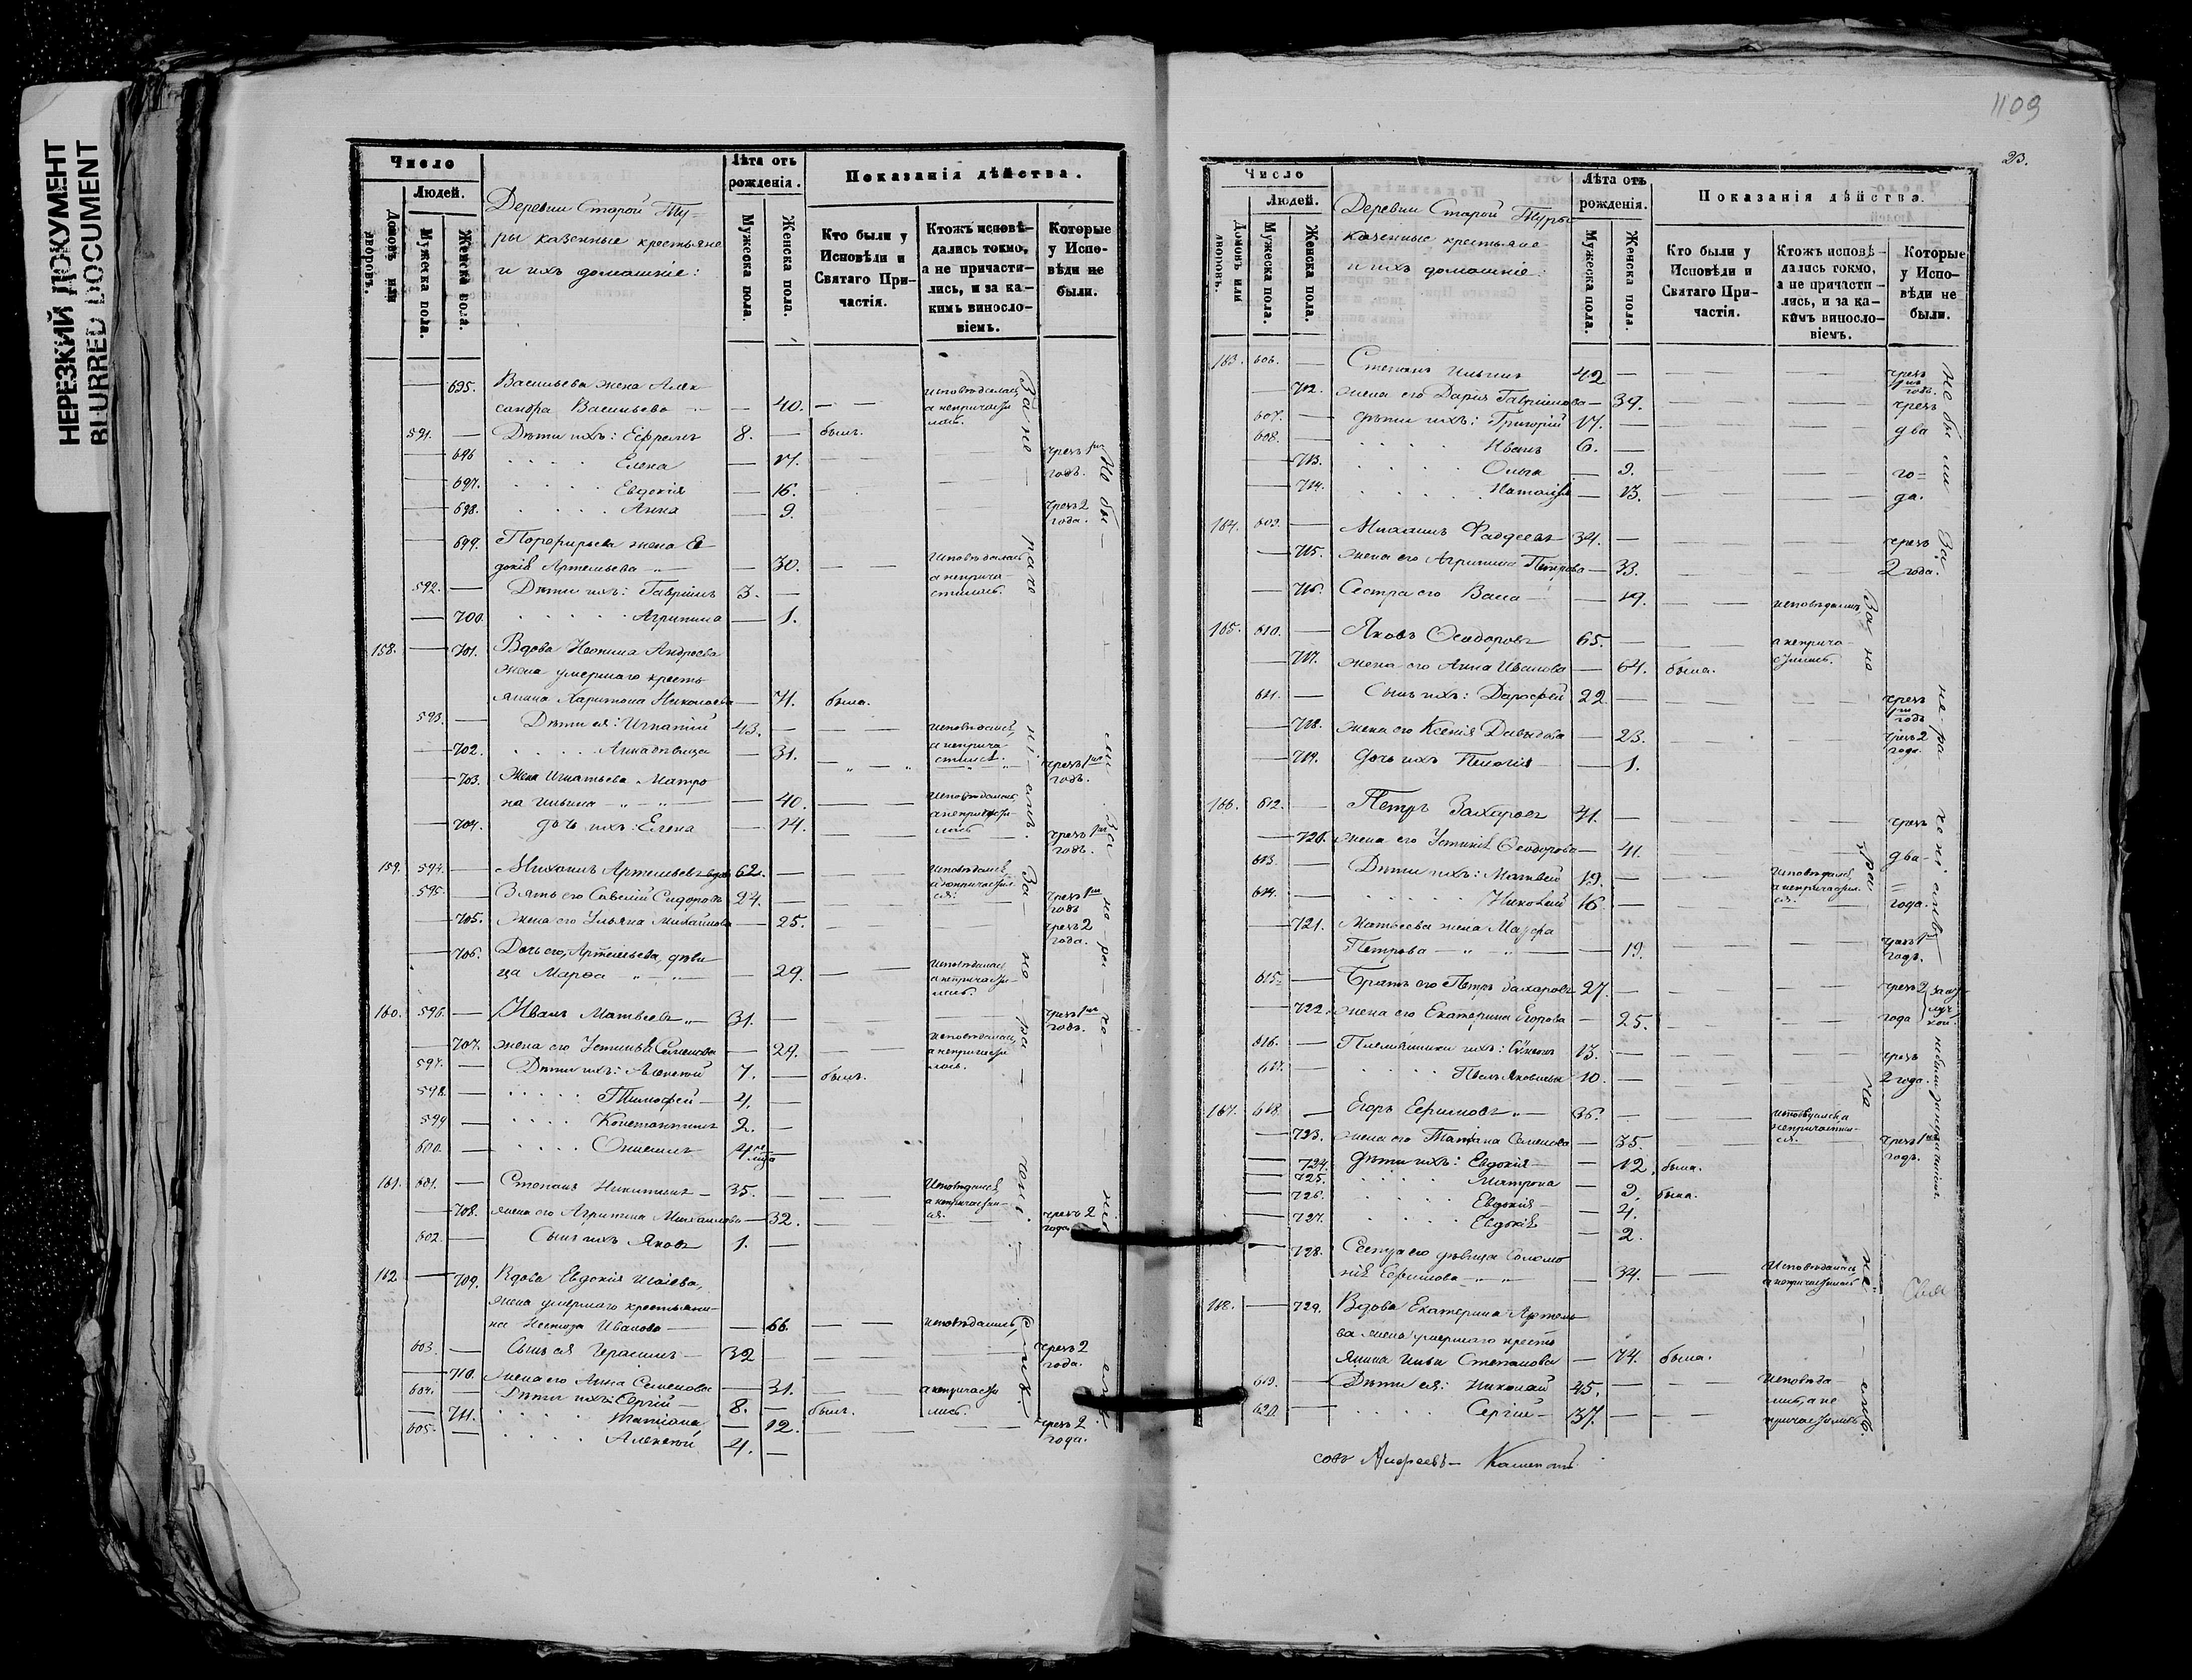 НЕРЕЗКИЙ ДОКУМЕНТ
BLURRED DOCUMENT
Число
Людей.
Домовъ или дворовъ.
Мужеска пола.
Женска пола.
Деревни Старой Ту-
ры казенные крестьяне
и ихъ домашніе:
Лѣта отъ рожденія.
Мужеска пола.
Женска пола.
Показанія дѣйства.
Кто были у Исповѣди и Святаго При-частія.
Ктожъ исповѣ-дались токмо, а не причасти-лись, и за ка-кимъ винословіемъ.
Которые у Испо-вѣди не были.
695. Васильева жена Алек
сандра Васильева — 40. — исповѣдалась а непричасти лась.
591. — Дѣти ихъ: Ефремъ 8. — былъ.
696 Елена — 17. чрезъ 1 годъ.
697. Евдокія — 16.
698. Анна — 9. чрезъ 2 года.
699. Порфирьева жена Ев
докія Артемьева — 30. — исповѣдалась а неприча-стилась.
592. — Дѣти ихъ: Гавріилъ 3. —
700. Агрипина — 1.
158. — 701. Вдова Андреева
жена умершаго кресть
янина Харитона Николаева — 71. была.
593. — Дѣти ея: Игнатій 43. — исповѣдался, а неприча-стился.
702. Анна дѣвица — 31. чрезъ 1 годъ.
703. Жена Игнатьева Матро
на Ильина — 40. исповѣдалась, а непричасти-лась
704. дочь ихъ: Елена — 14. чрезъ 1 годъ.
159. 594. — Михаилъ Артемьевъ вдовъ 62. — исповѣдался, а непричастил-ся.
595. — Зять его Савелій Сидоровъ 24. — чрезъ 1 годъ
705. жена его Ульяна Михайлова — 25. чрезъ 2 года.
706. Дочь его, Артемьева, дѣви
ца Марѳа — 29. исповѣдалась а непричасти-лась.
160. 596. — Иванъ Матвѣевъ 31. — чрезъ 1 годъ.
707. жена его Устинія Семенова — 29. исповѣдалась, а непричасти лась.
597. — Дѣти ихъ: Алексѣй 7. — былъ.
598. — Тимофей 4. —
599 — Константинъ 2. —
600. — Онисимъ 4 мца —
161. 601. — Степанъ Никитинъ 35. — исповѣдался, а непричастил-ся.
708. жена его Агрипина Михайлова — 32. чрезъ 2 года
602. — Сынъ ихъ Яковъ 1. —
162 — 709. Вдова Евдокія Исаіева,
жена умершаго крестьяни-
на Нестора Иванова — 66. — исповѣдались,
603. — Сынъ ея Герасимъ 32 — чрезъ 2 года.
710. жена его Анна Семенова — 31. а непричасти лись.
604. — Дѣти ихъ: Сергій 8. — былъ.
711. Татіана — 12. чрезъ 2 года.
605. — Алексѣй 4. —
1109
23.
Число
Людей.
Домовъ или дворовъ.
Мужеска пола.
Женска пола.
Деревни Старой Туры
казенные крестьяне
и ихъ домашніе:
Лѣта отъ рожденія.
Мужеска пола.
Женска пола.
Показанія дѣйства.
Кто были у Исповѣди и Святаго При-частія.
Ктожъ исповѣ-дались токмо, а не причасти-лись, и за ка-кимъ винословіемъ.
Которые у Испо-вѣди не были.
163. 606. — Степанъ Ильинъ 42 — чрезъ 1 годъ.
712. жена его Дарія Гаврилова — 39. чрезъ
607. — дѣти ихъ: Григорій 17. — два
608. — Иванъ 6. —
713. Ольга — 9. го-
714. Наталія — 13. да.
164. 609. — Михаилъ Фаддеевъ 34. — чрезъ
715. жена его Агрипина Петрова — 33. 2 года.
716. Сестра его Васса — 19. исповѣдались,
165. 610. — Яковъ Ѳеодоровъ 65. — а неприча-стились.
717. жена его Анна Иванова — 64. была.
611. — Сынъ ихъ: Дарофей 22 — чрезъ 1 годъ
718. жена его Ксенія Давыдова — 23. чрезъ 2 года.
719. дочь ихъ Пелагія — 1.
166. 612. — Петръ Захаровъ 41. — чрезъ
720. жена его Устинія Ѳеодорова — 41. два
613. — Дѣти ихъ: Матвѣй 19. — исповѣдался, а непричастил-ся.
614. — Николай 16 — года.
721. Матвѣева жена Мавра
Петрова — 19. чрезъ 1 годъ.
615. — Братъ его Петръ Захаровъ 27. — чрезъ 2 года
722. жена его Екатерина Егорова — 25. за от-луч-кой.
616. — Племянники ихъ: 13. — чрезъ
617. Яковлевы 10. — 2 года.
167. 618. — Егоръ Ефимовъ 36. — исповѣдался а непричастил-ся.
723. жена его Татіана Семенова — 35. чрезъ 1 годъ.
724. дѣти ихъ: Евдокія — 12 была.
725. Матрона — 9. была.
726. Евдокія — 4.
727. Евдокія — 2.
728. Сестра его дѣвица Соломо
нія Ефимова — 34. исповѣдалась, а непричастилась
168. — 729. Вдова Екатерина Артемье
ва жена умершаго кресть
янина Ильи Степанова — 74. была.
619. — Дѣти ея: Николай 45. — исповѣда-
620. — Сергій 37. — лись, а не причастились
Андреевъ